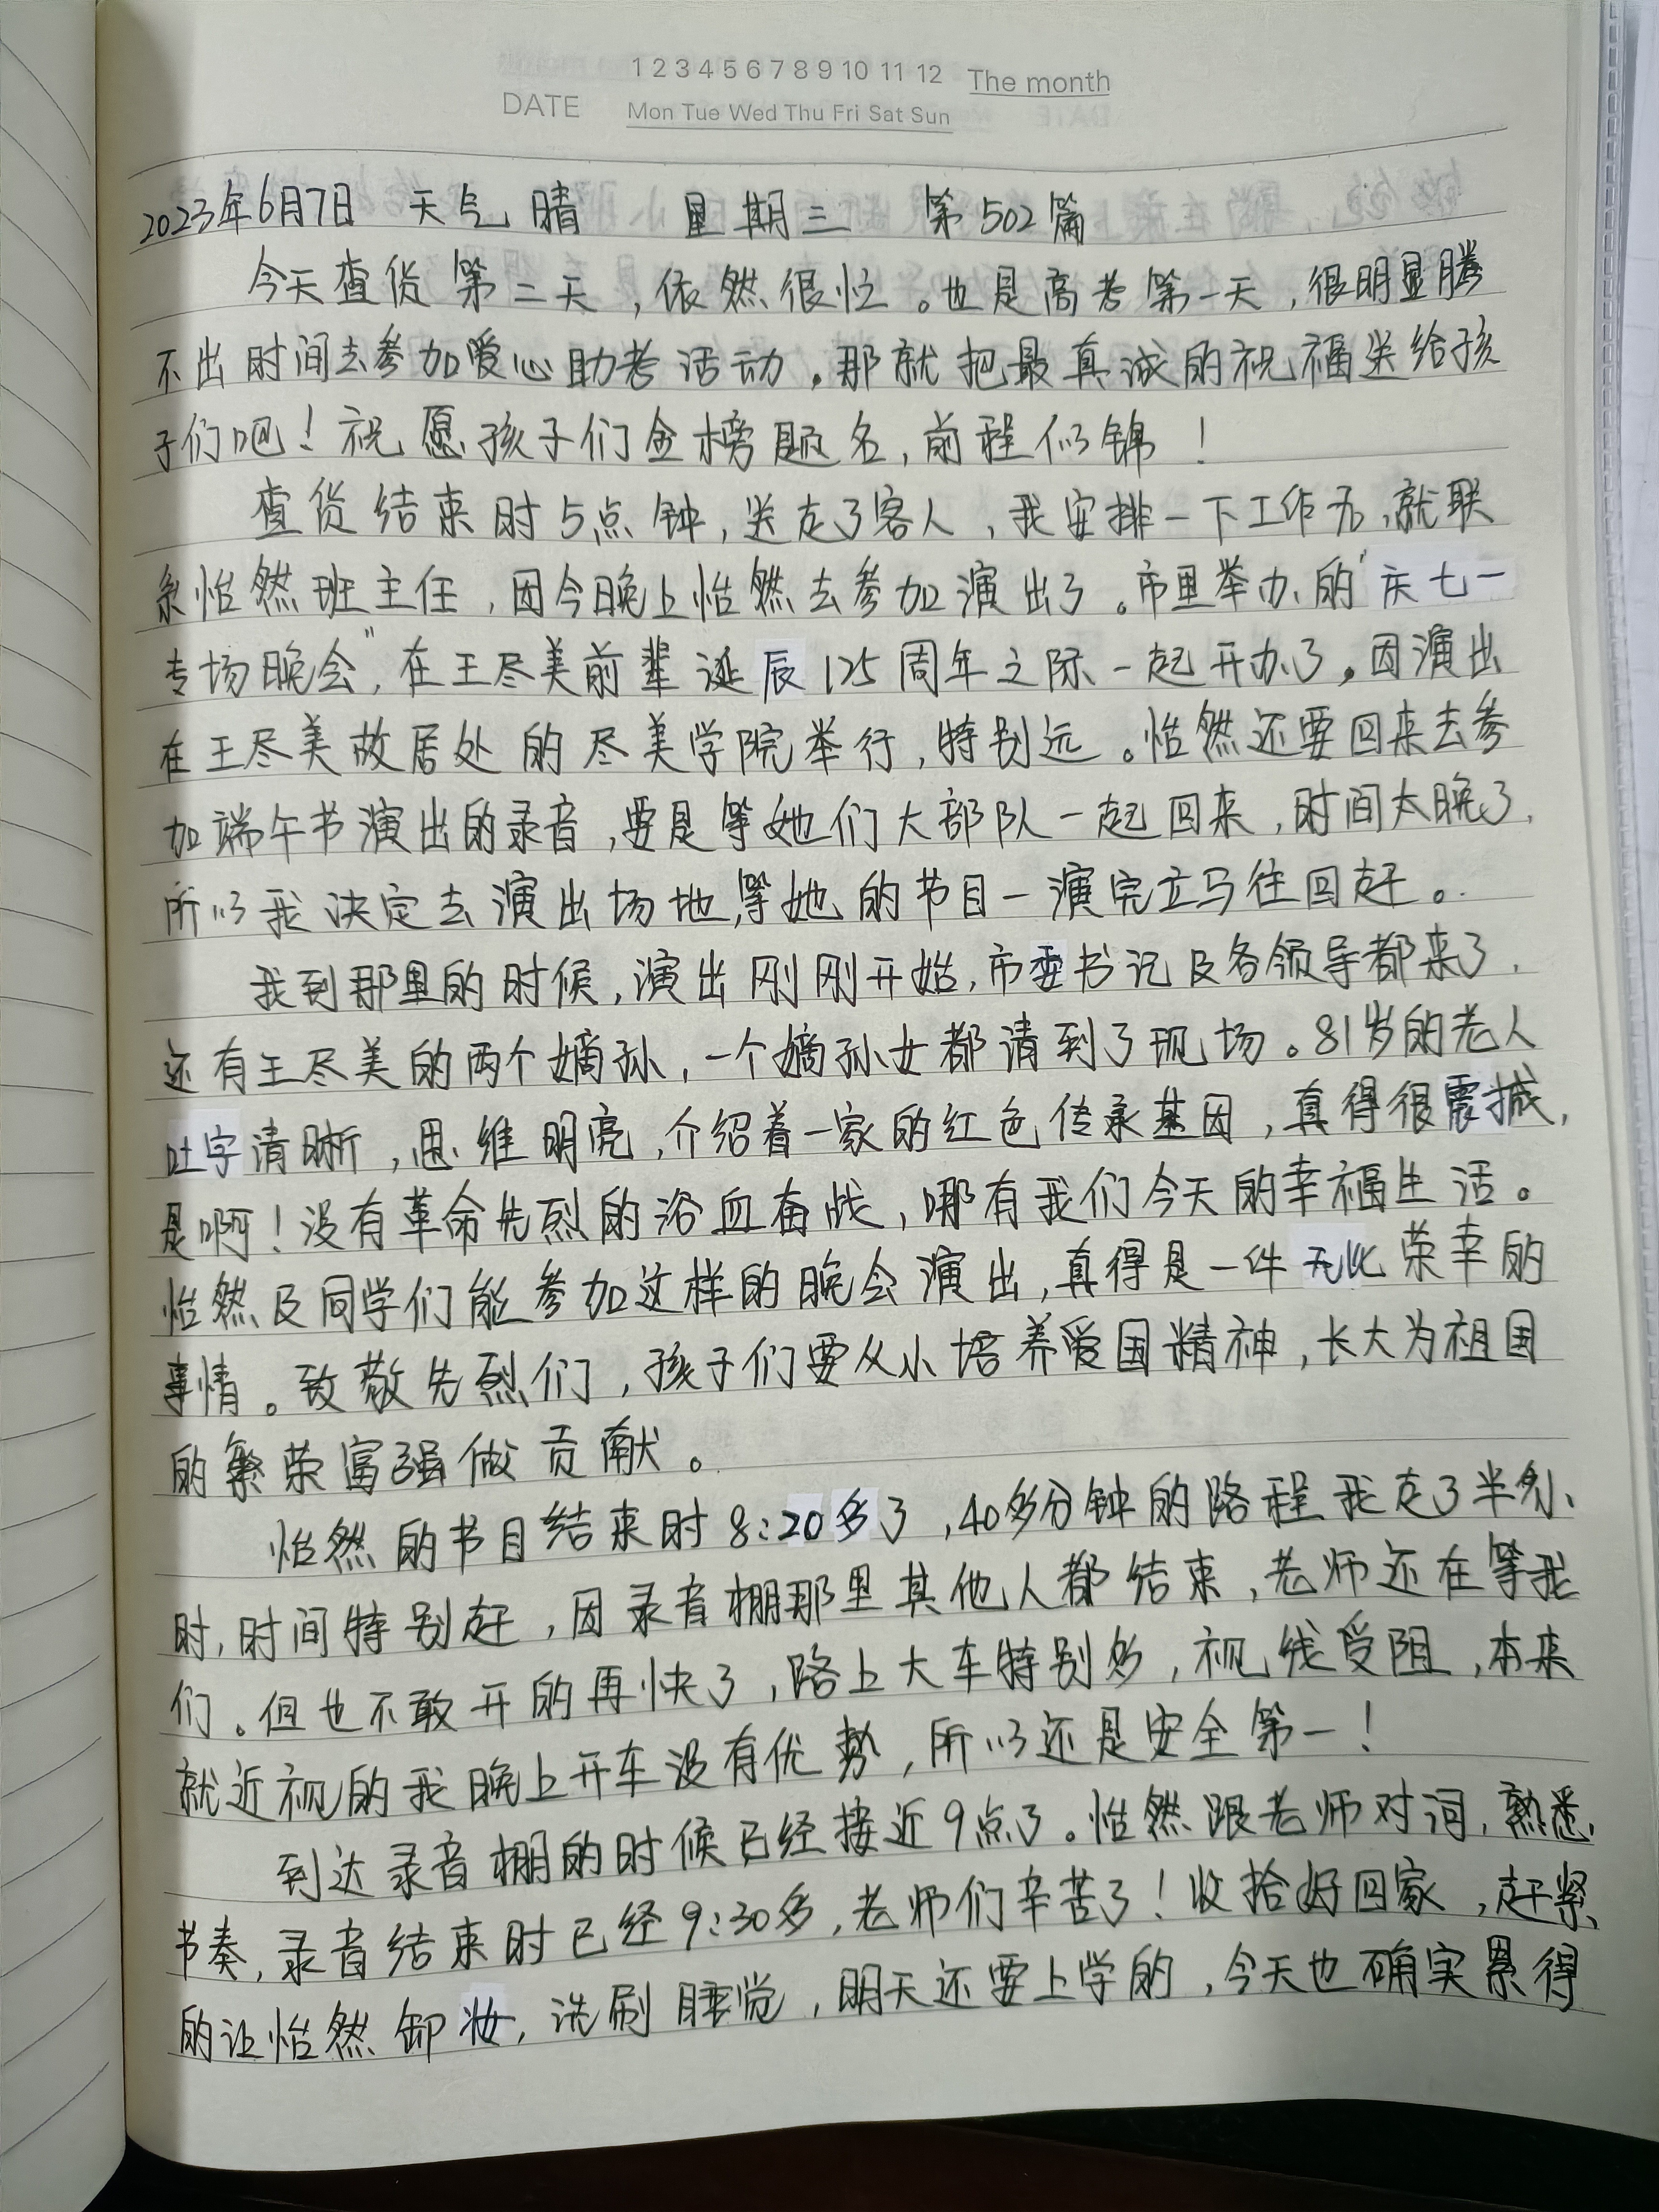 1 2 3 4 5 6 7 8 9 10 11 12 The month
DATE Mon Tue Wed Thu Fri Sat Sun
2023年6月7日 天气晴 星期三 第502篇
今天查货第二天,依然很忙。也是高考第一天,很明显腾
不出时间去参加爱心助考活动。那就把最真诚的祝福送给孩
子们吧!祝愿孩子们金榜题名,前程似锦!
查货结束时5点钟,送走了客人,我安排一下工作后,就联
系怡然班主任,因今晚上怡然去参加演出了。市里举办的"庆七一
专场晚会",在王尽美前辈诞辰125周年之际一起开办了。因演出
在王尽美故居处的尽美学院举行,特别远。怡然还要回来去参
加端午书演出的录音,要是等她们大部队一起回来,时间太晚了,
所以我决定去演出场地,等她的节目一演完立马往回赶。
我到那里的时候,演出刚刚开始,市委书记及各领导都来了,
还有王尽美的两个嫡孙,一个嫡孙女都请到了现场。81岁的老人
吐字清晰,思维明亮,介绍着一家的红色传承基因,真得很震撼,
是啊!没有革命先烈的浴血奋战,哪有我们今天的幸福生活。
怡然及同学们能参加这样的晚会演出,真得是一件无比荣幸的
事情。致敬先烈们,孩子们要从小培养爱国精神,长大为祖国
的繁荣富强做贡献。
怡然的节目结束时8:20多了,40多分钟的路程我走了半个小
时,时间特别赶,因录音棚那里其他人都结束,老师还在等我
们。但也不敢开的再快了,路上大车特别多,视线受阻,本来
就近视的我晚上开车没有优势,所以还是安全第一!
到达录音棚的时候已经接近9点了。怡然跟老师对词,熟悉
节奏,录音结束时已经9:30多,老师们辛苦了!收拾好回家,赶紧
的让怡然卸妆,洗刷睡觉,明天还要上学的,今天也确实累得